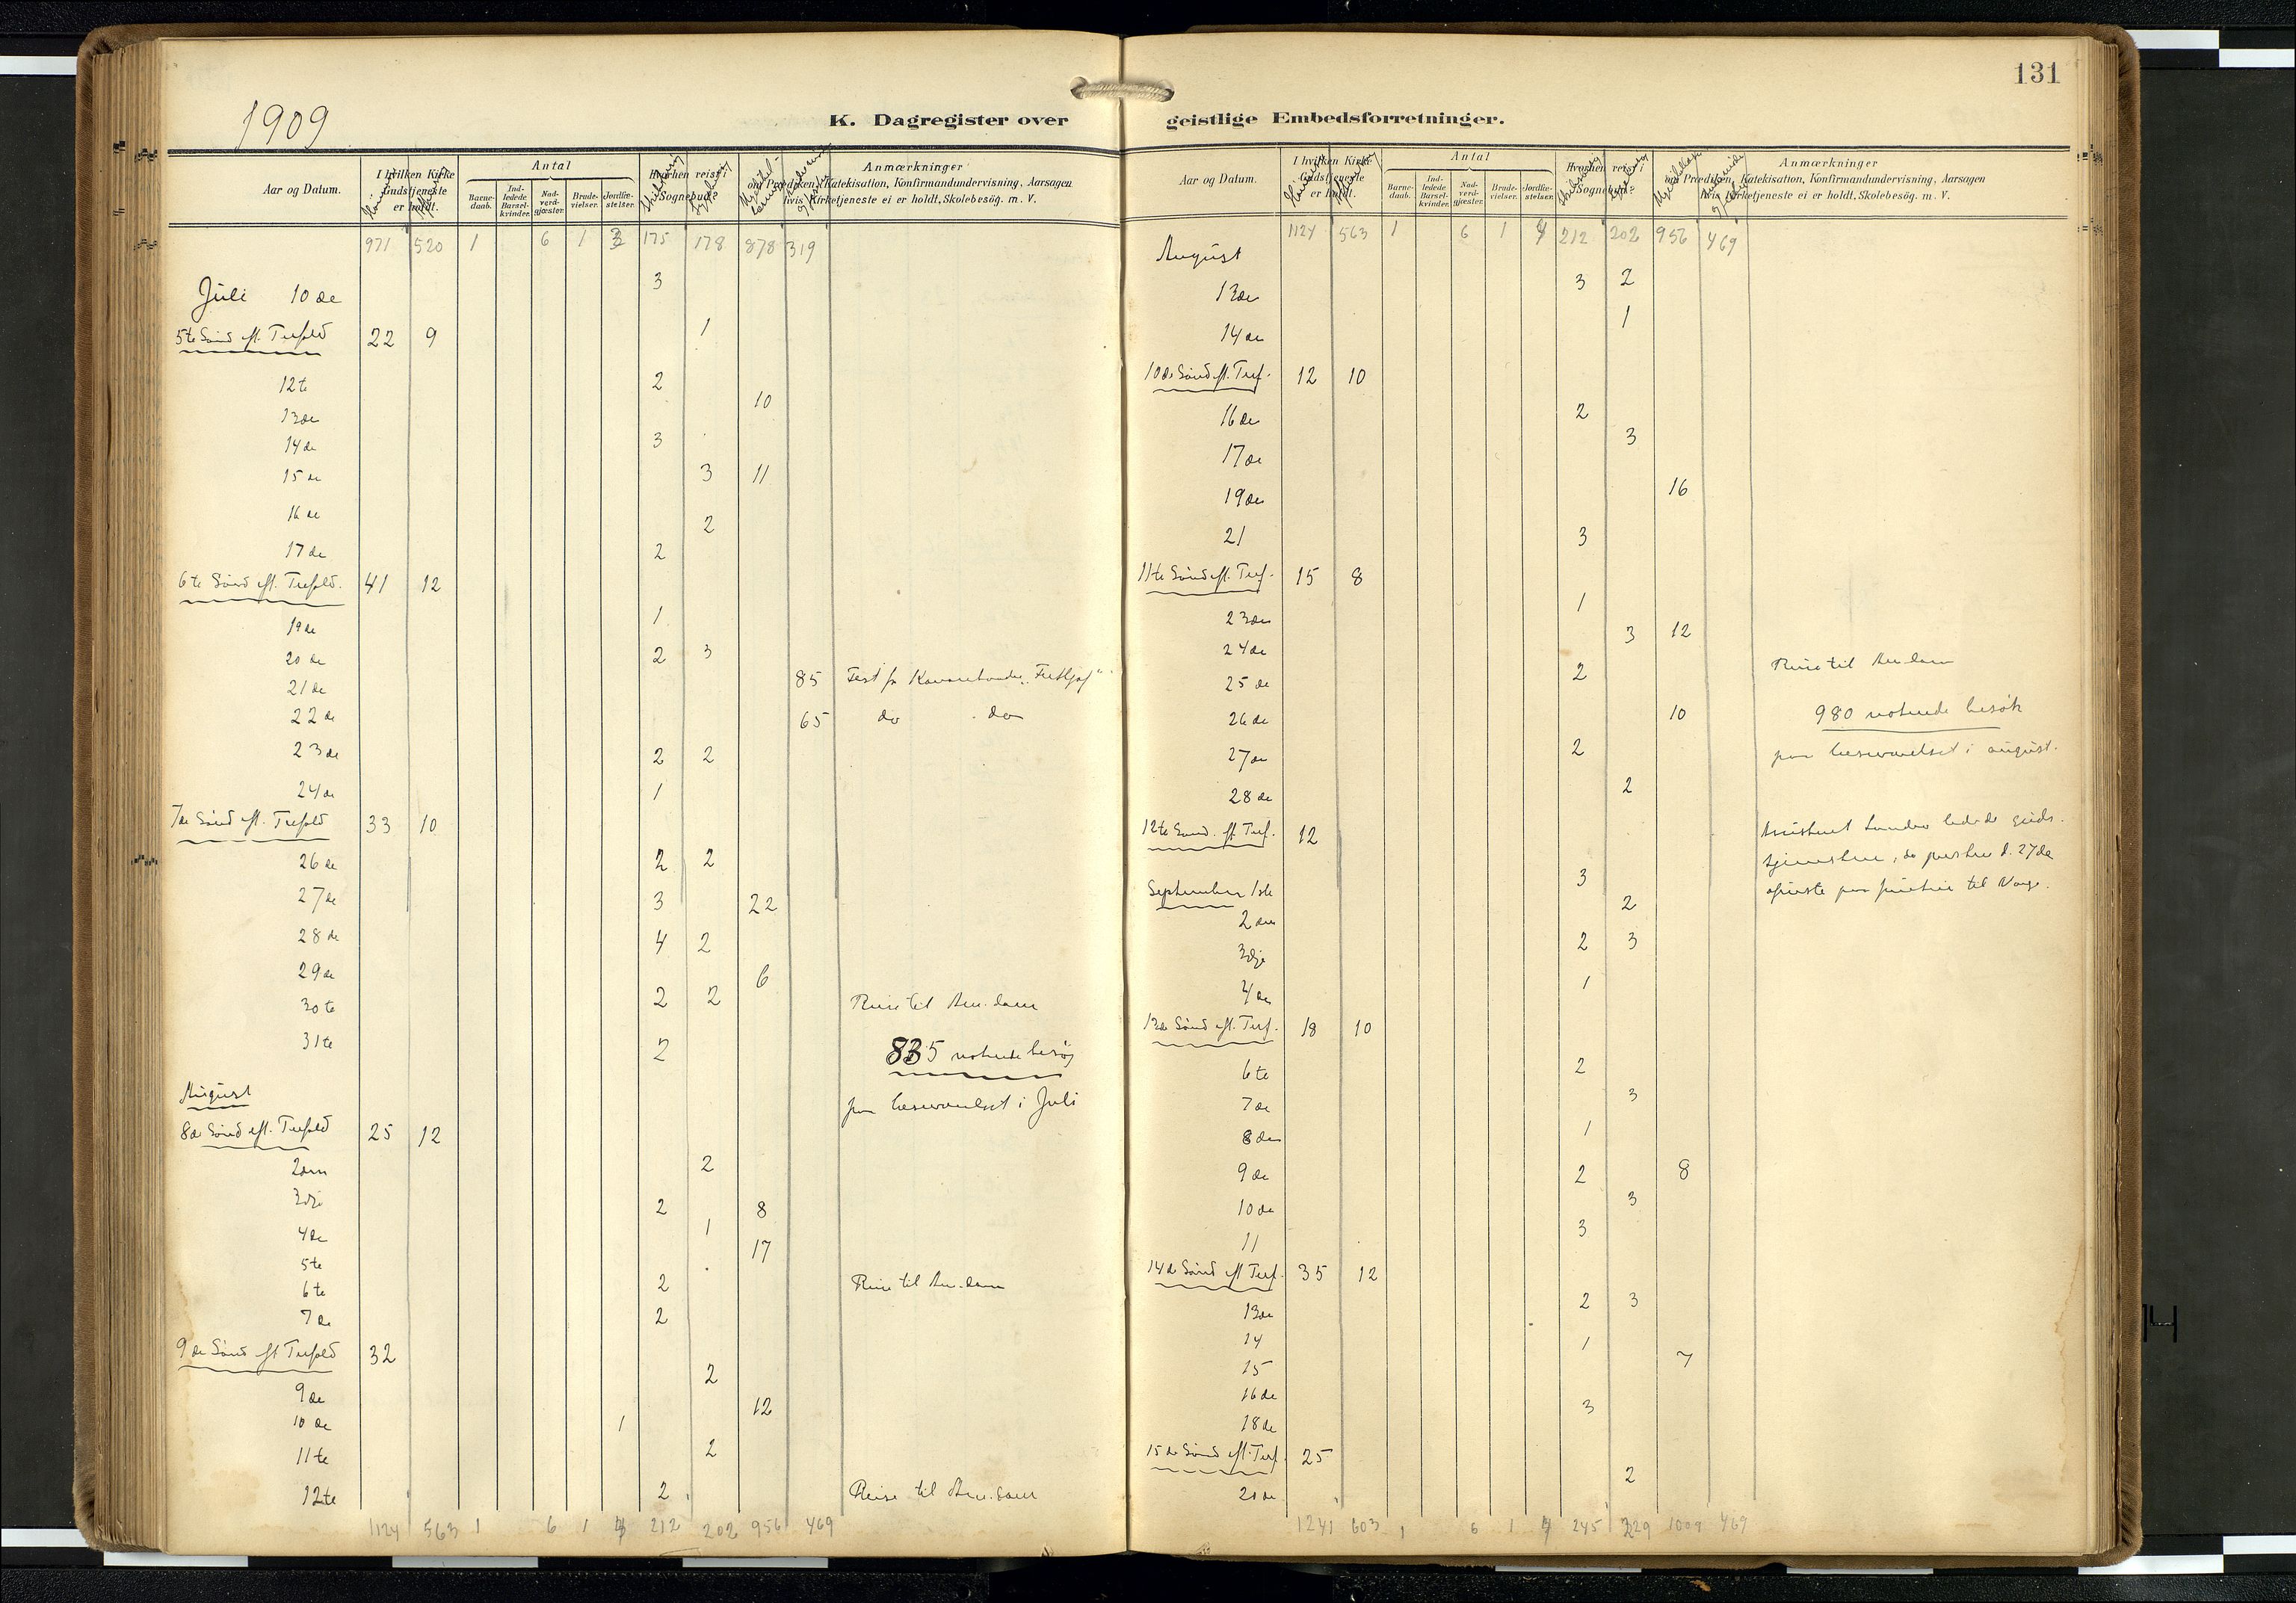 131
1909
K. Dagregister over geistlige Embedsforretninger.
Aar og Datum. I hvilken Kirke Gudstjeneste er holdt. Antal Barne-daab. Ind-ledede Barsel-kvinder. Nad-verd-gjæster. Brude-vielser. Jordfæ-stelser. Hvorhen reist i Sognebud Anmærkninger
om Prædiken, Katekisation, Konfirmandundervisning, Aarsagen
hvis Kirketjeneste ei er holdt, Skolebesög. m. V.
971 520 1 6 1 3 175 178 878 319
Juli 10de 3
5te Sönd eft. Trefold 22 9 1
12te 2
13de 10
14de 3
15de 3 11
16de 2
17de 2
6te Sönd eft. Trefold. 41 12
19de 1
20de 2 3
21de 85 Fest
22de 65 do do
23de 2 2
24de 1
7de Sönd eft. Trefold 33 10
26de 2 2
27de 3 22
28de 4 2
29de 6
30te 2 2 Reise til Am.dam
31te 2 835 noterede besøg
paa læseværelset i Juli
August
8de Sönd eft. Trefold 25 12
2den 2
3dje 2 8
4de 1 17
5te
6te 2 Reise til Am.dam
7de 2
9de Sönd eft Trefold 32
9de 2
10de 12 1
11te 2
12te 2 Reise til Am.dam
1124 563 1 6 1 4 212 202 956 469
Aar og Datum. I hvilken Kirke Gudstjeneste er holdt. Antal Barne-daab. Ind-ledede Barsel-kvinder. Nad-verd-gjæster. Brude-vielser. Jordfæ-stelser. Hvorhen reist i Sognebud Anmærkninger
om Prædiken, Katekisation, Konfirmandundervisning, Aarsagen
hvis Kirketjeneste ei er holdt, Skolebesög. m. V.
1124 563 1 6 1 4 212 202 956 469
August
13de 3 2
14de 1
10de Sönd eft. Tref. 12 10
16de 2
17de 3
19de 16
21 3
11te Sönd eft. Tref. 15 8
23de 1
24de 3 12
25de 2 Reise til Am.dam
26de 10 980 noterede besök
27de 2 paa læseværelset i august.
28de 2
12te Sönd. eft. Tref. 12 Assistent ledede guds-
tjenesten, da presten d. 27de
September 1ste 3 afreiste paa ferie til Norge.
2den 2
3dje 2 3
4de 1
13de Sönd eft. Tref. 18 10
6te 2
7de 3
8de 1
9de 2 8
10de 3
11 3
14de Sönd eft Tref. 35 12
13de 2 3
14 1
15 7
16de
18de 3
15de Sönd eft. Tref. 25
20de 2
1241 603 1 6 1 4 245 229 1009 469